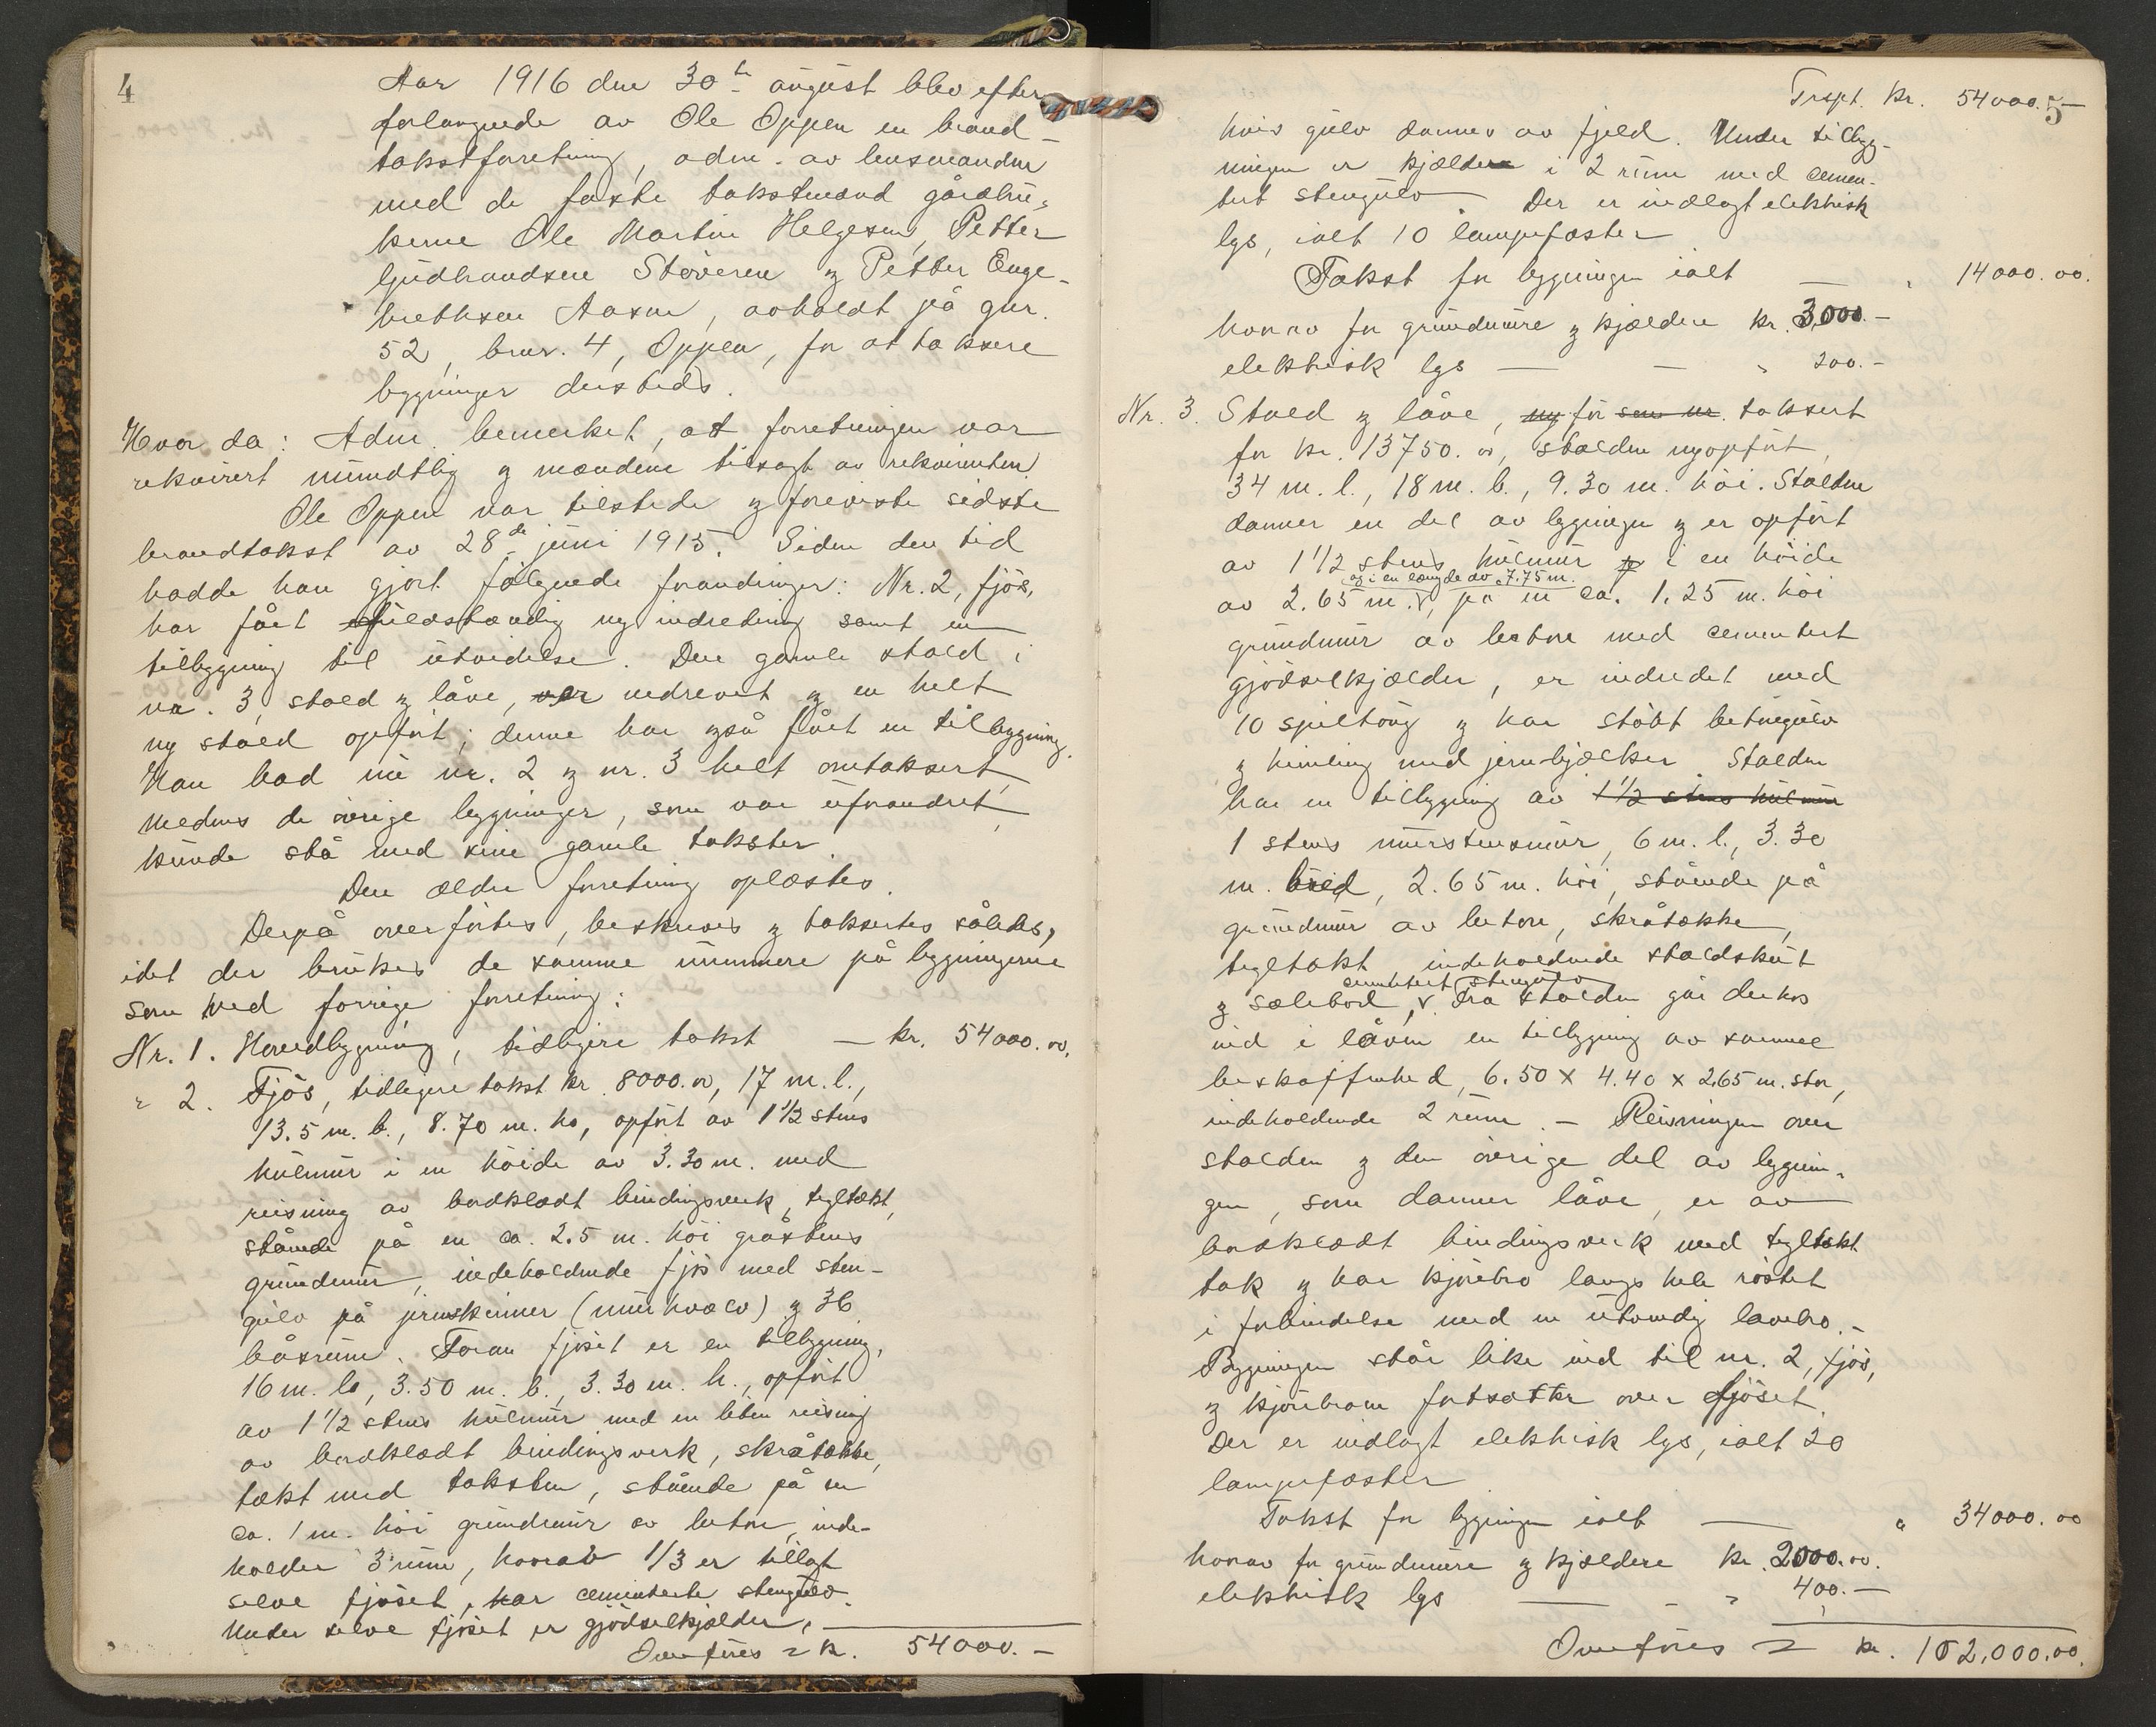 4
Aar 1916 den 30te august blev efter
forlangende av Ole Oppen en brand-
takstforretning, adm. av lensmanden
med de faste takstmænd gårdbru-
kerne Ole Martin Helgesen, Petter
Gudbrandsen Støveren og Petter Enge-
brethsen Aasen, avholdt på gnr.
52, brnr. 4, Oppen, for at taksere
bygninger dersteds.
Hvor da: Adm. bemerket, at forretningen var
rekvirert mundtlig og mændene tilsagt av rekvirenten
Ole Oppen var tilstede og foreviste sidste
brandtakst av 28de juni 1915. Siden den tid
hadde han gjort følgende forandringer: Nr. 2, fjøs,
har fåt fuldstændig ny indredning samt en
tilbygning til utvidelse. Den gamle stald i
nr. 3, stald og låve, er nedrevet og en helt
ny stald opført; denne har også fåt en tilbygning.
Han bad nu nr. 2 og nr. 3 helt omtaksert,
medens de øvrige bygninger, som var uforandret,
kunde stå med sine gamle takster.
Den ældre forretning oplæstes.
Derpå overførtes, beskreves og taksertes således,
idet der brukes de samme nummere på bygningerne
som ved forrige forretning:
Nr. 1. Hovedbygning, tidligere takst — kr. 54000.00.
" 2. Fjøs, tidligere takst kr. 8000.00, 17 m. l.,
13.5 m. b., 8.70 m. hø, opført av 1½ stens
hulmur i en høide av 3.30 m. med
reisning av bordklædt bindingsverk, tegltækt,
stående på en ca. 2.5 m. høi gråstens
grundmur, indeholdende fjøs med sten-
gulv på jernskinner (murhvælv) og 36
båsrum. Foran fjøset er en tilbygning,
16 m. la, 3.50 m. b., 3.30 m. h., opført
av 1½ stens hulmur med en liten reisning
av bordklædt bindingsverk, skråtække,
tækt med taksten, stående på en
ca. 1 m. høi grundmur av beton, inde-
holder 3 rum, hvorav 1/3 er tillagt
selve fjøset, har cementerte stengulv.
Under selve fjøset er gjødselkjelder.
Overføres = kr. 54000.—
5
Trspt. kr. 54000.—
hvis gulv dannes av fjeld. Under tilbyg-
ningen er kjelder i 2 rum med cemen-
tert stengulv. Der er indlagt elektrisk
lys, ialt 10 lampefæster
Takst for bygningen ialt — " 14000.00.
hvorav for grundmure og kjeldere kr. 3,000.—
elektrisk lys — — " 200.—
Nr. 3. Stald og låve, ny før som nr. taksert
for kr. 13750.00, stalden nyopført,
34 m. l., 18 m. b., 9.30 m. høi. Stalden
danner en del av bygningen og er opført
av 1½ stens hulmur i en høide
og i en længde av 7.75 m.
av 2.65 m. v, på en ca. 1.25 m. høi
grundmur av beton med cementert
gjødselkjelder, er indredet med
10 spiltaug og har støbt betongulv
og himling med jernbjælker. Stalden
har en tilbygning av 1½ stens hulmur
1 stens murstensmur, 6 m. l., 3.30
m. bred, 2.65 m. høi, stående på
grundmur av beton, skråtække,
tegltækt, indeholdende staldskut
cementert stengulv
og sælebod, v. Fra stalden går derhos
ind i låven en tilbygning av samme
beskaffenhed, 6.50 x 4.40 x 2.65 m. stor,
indeholdende 2 rum. — Reisningen over
stalden og den øvrige del av bygnin-
gen, som danner låve, er av
bordklædt bindingsverk med tegltækt
tak og har kjørebro langs hele røstet
i forbindelse med en utvendig låvebro. —
Bygningen står like ind til nr. 2, fjøs,
og kjørebroen fortsætter over fjøset.
Der er indlagt elektrisk lys, ialt 20
lampefæster
Takst for bygningen ialt — " 34000.00
hvorav for grundmure og kjeldere kr. 2000.00.
elektrisk lys — — " 400.—
Overføres = kr. 102,000.00.